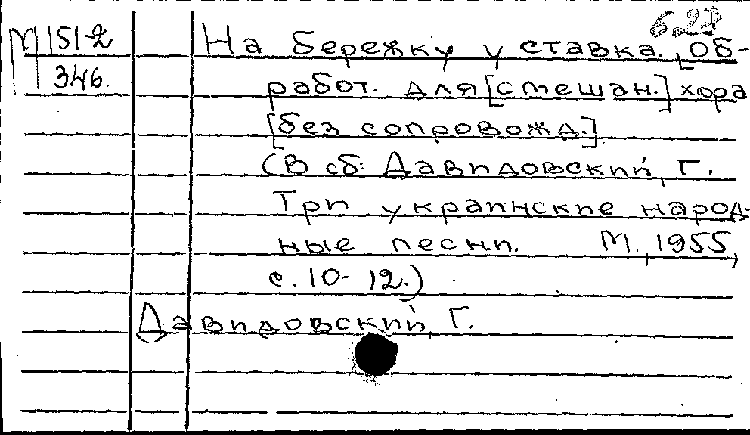 6.27
М 151-2
346.
На бережку у ставка. [Об-
работ. для [смешан.] хора
[без сопровожд.]
(В сб: Давидовский, Г.
Три украинские народ-
ные песни. М., 1955,
с. 10-12.)
Давидовский, Г.